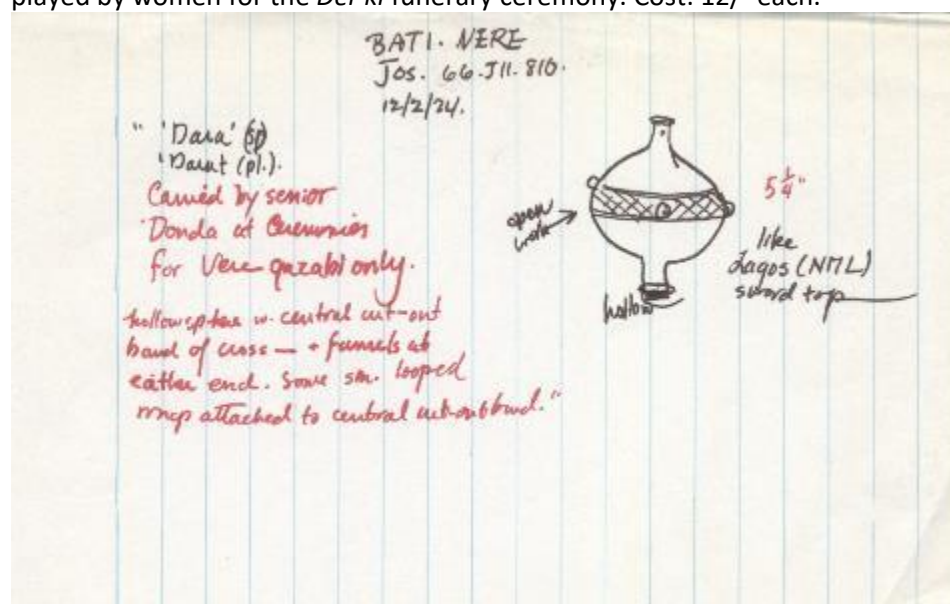 played by women for the Del ki funerary ceremony. Cost: 12/- each.
BATI. NERE
Jos. 66.J11.810.
12/2/
" 'Dara'
'Darat (pl.).
Carried by senior
Donda at Ceremonies
for Vere gazabi only.
hollow sphere w. central cut-out
band of cross — + funnels at
either end. Some sm. looped
attached to central cut-out band."
open
work
hollow
5 1/4"
like
Lagos (NML)
sword top